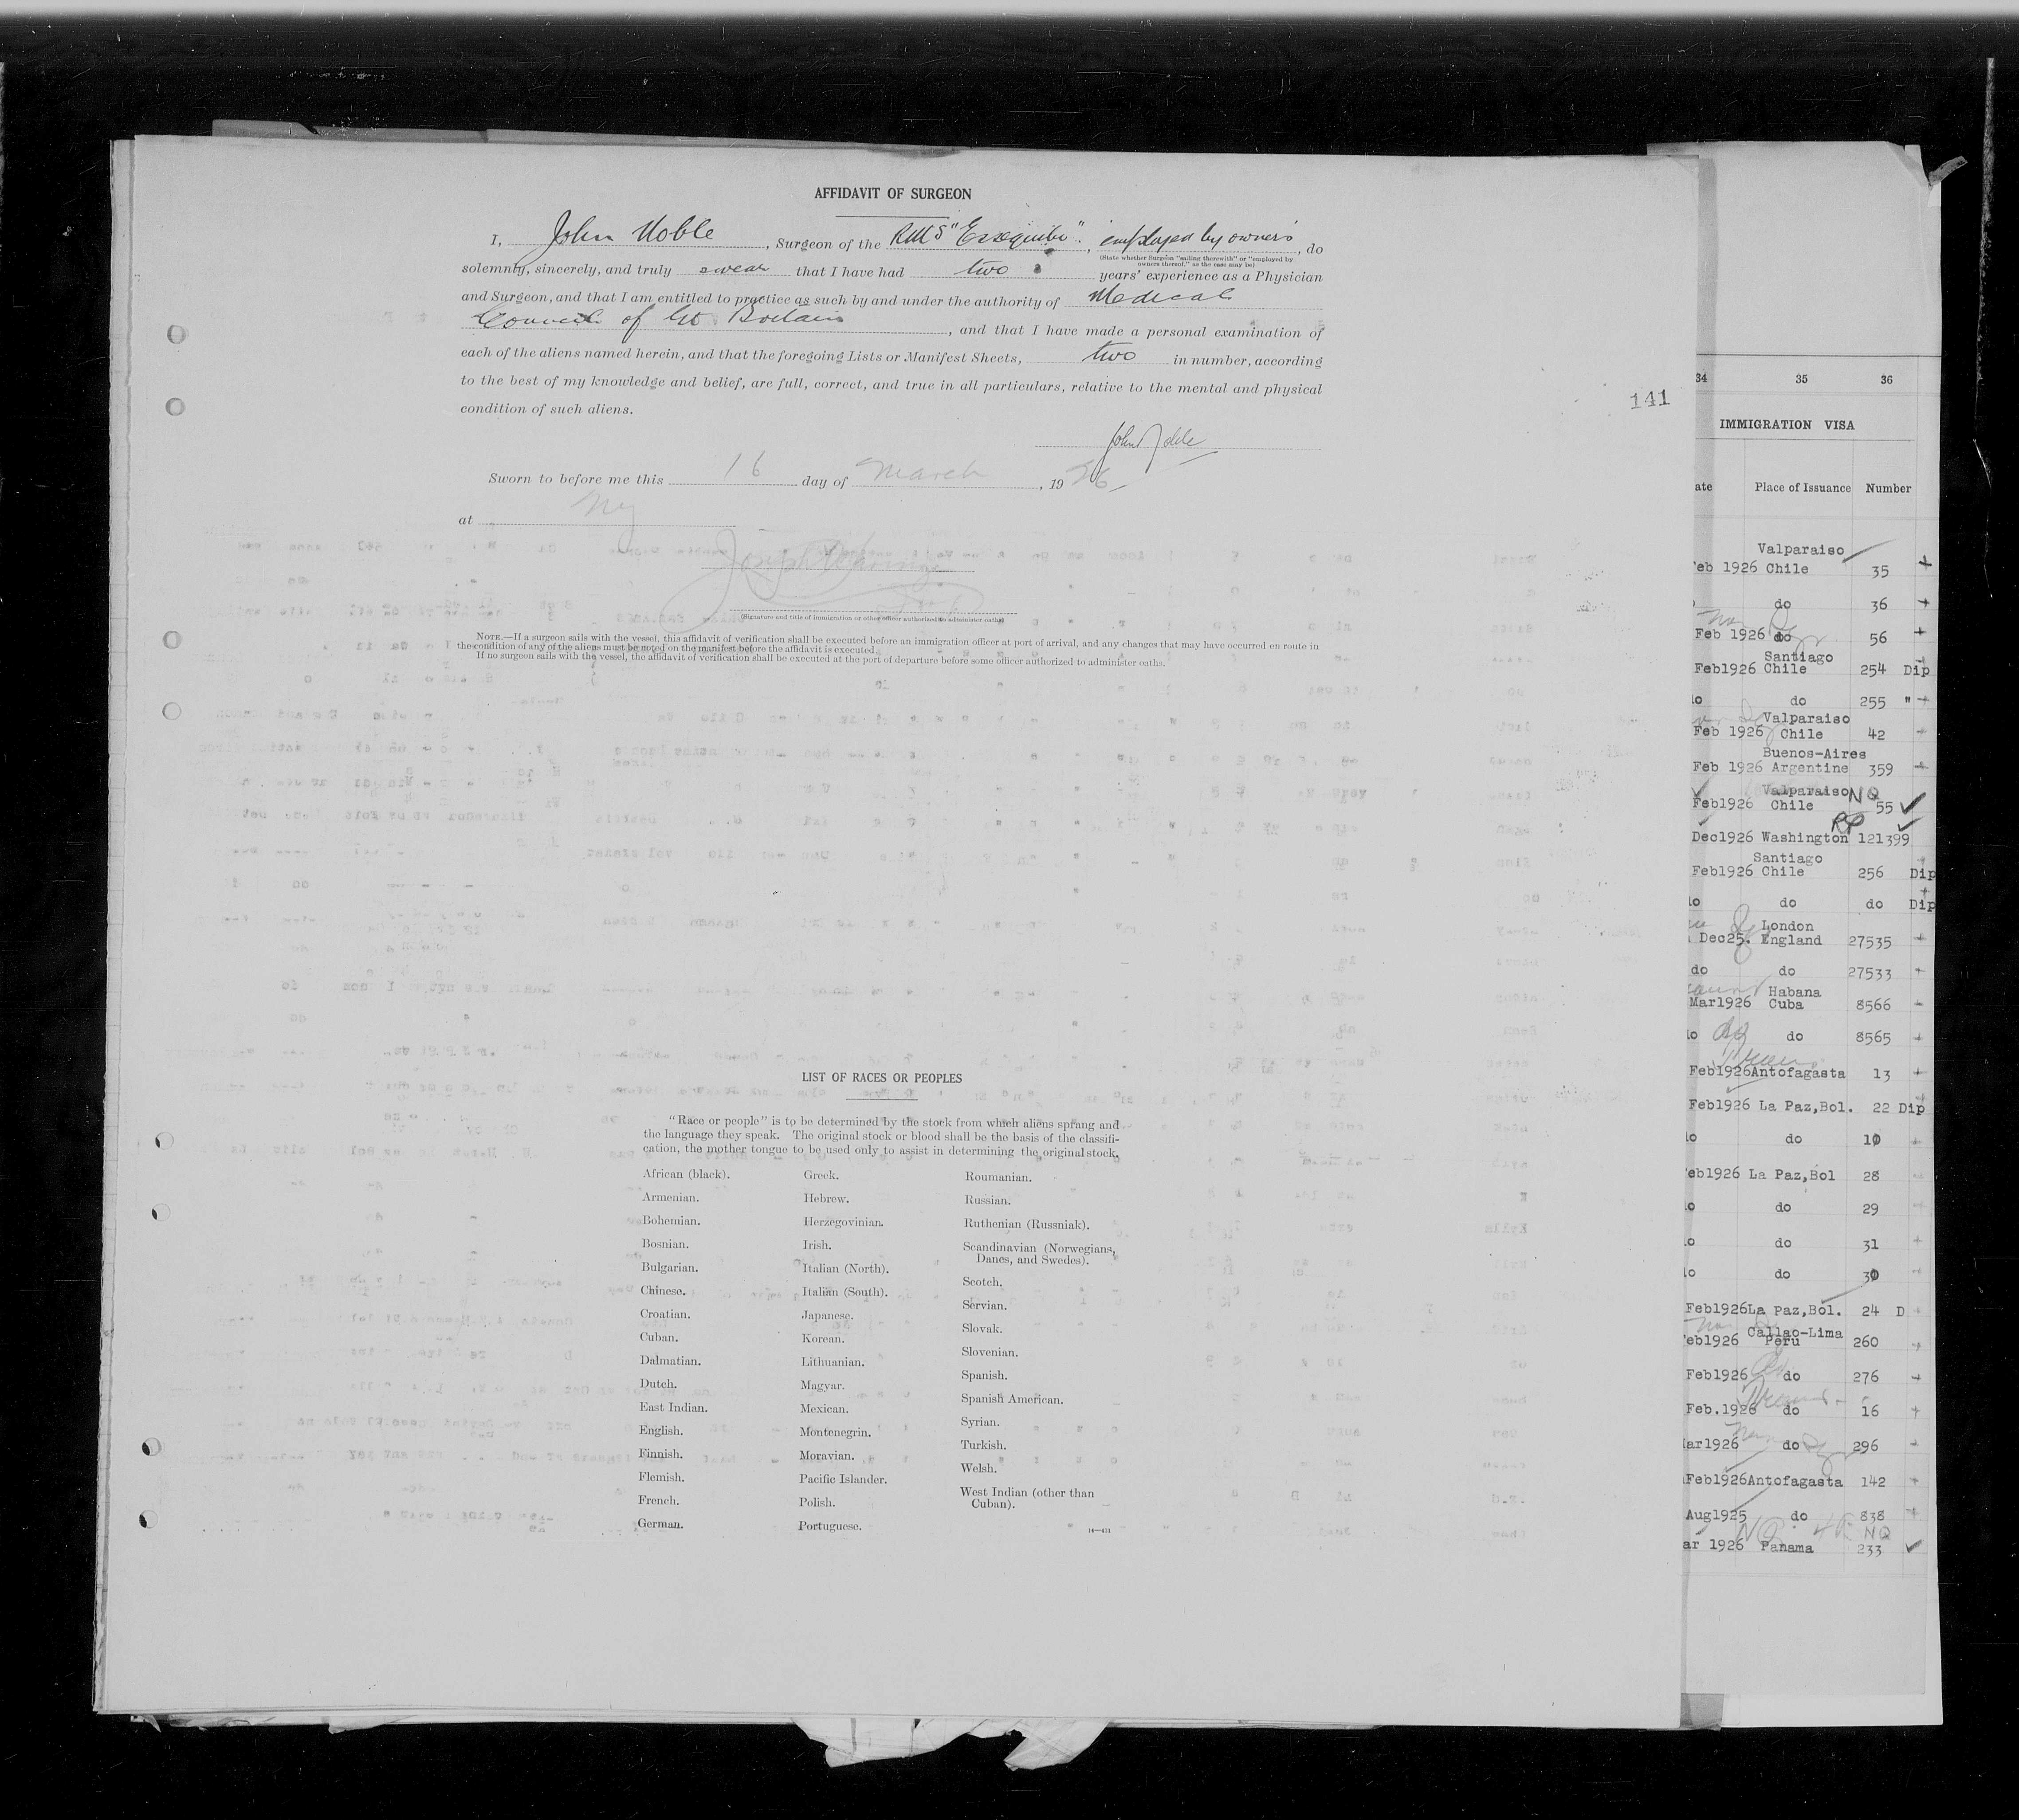 AFFIDAVIT OF SURGEON
I, John Noble, Surgeon of the RMS "Essequibo", employed by owners, do
(State whether Surgeon "sailing therewith" or "employed by
owners thereof," as the case may be)
solemnly, sincerely, and truly swear that I have had two years' experience as a Physician
and Surgeon, and that I am entitled to practice as such by and under the authority of Medical
Council of Gt Britain, and that I have made a personal examination of
each of the aliens named herein, and that the foregoing Lists or Manifest Sheets, two in number, according
to the best of my knowledge and belief, are full, correct, and true in all particulars, relative to the mental and physical
condition of such aliens.
141
John Noble
Sworn to before me this 16 day of March, 1926
at NY
(Signature and title of immigration or other officer authorized to administer oaths)
NOTE.—If a surgeon sails with the vessel, this affidavit of verification shall be executed before an immigration officer at port of arrival, and any changes that may have occurred en route in
the condition of any of the aliens must be noted on the manifest before the affidavit is executed.
If no surgeon sails with the vessel, the affidavit of verification shall be executed at the port of departure before some officer authorized to administer oaths.
LIST OF RACES OR PEOPLES
"Race or people" is to be determined by the stock from which aliens sprang and
the language they speak. The original stock or blood shall be the basis of the classifi-
cation, the mother tongue to be used only to assist in determining the original stock.
African (black).
Armenian.
Bohemian.
Bosnian.
Bulgarian.
Chinese.
Croatian.
Cuban.
Dalmatian.
Dutch.
East Indian.
English.
Finnish.
Flemish.
French.
German.
Greek.
Hebrew.
Herzegovinian.
Irish.
Italian (North).
Italian (South).
Japanese.
Korean.
Lithuanian.
Magyar.
Mexican.
Montenegrin.
Moravian.
Pacific Islander.
Polish.
Portuguese.
Roumanian.
Russian.
Ruthenian (Russniak).
Scandinavian (Norwegians,
Danes, and Swedes).
Scotch.
Servian.
Slovak.
Slovenian.
Spanish.
Spanish American.
Syrian.
Turkish.
Welsh.
West Indian (other than
Cuban).
34 35 36
IMMIGRATION VISA
ate Place of Issuance Number
Valparaiso
eb 1926 Chile 35
do 36
Feb 1926 do 56
Santiago
Feb1926 Chile 254 Dip
lo do 255 "
Valparaiso
Feb 1926 Chile 42
Buenos-Aires
Feb 1926 Argentine 359
Valparaiso NQ
Feb1926 Chile 55
RP
Dec1926 Washington 121399
Santiago
Feb1926 Chile 256 Dip
lo do do Dip
London
Dec25. England 27535
do do 27533
Habana
Mar1926 Cuba 8566
lo do 8565
Feb1926 Antofagasta 13
Feb1926 La Paz,Bol. 22 Dip
lo do 10
eb1926 La Paz,Bol 28
lo do 29
lo do 31
lo do 30
Feb1926 La Paz,Bol. 24 D
Callao-Lima
eb1926 Peru 260
Feb1926 do 276
Feb.1926 do 16
ar1926 do 296
Feb1926 Antofagasta 142
Aug1925 do 838
NQ NQ
ar 1926 Panama 233